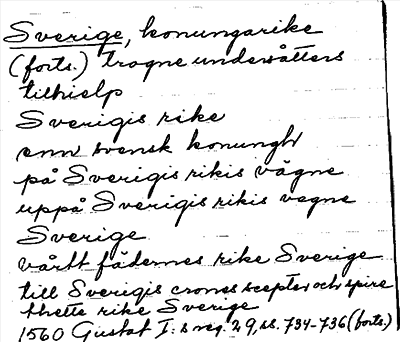 Sverige, konungarike
(forts.) trogne undersåtters
tilhielp
Sverigis rike
enn svensk konungh
på Sverigis rikis vägne
uppå Sverigis rikis vegne
Sverige
vårtt fädernes rike Sverige
till Sverigis crones scepter och spire
thette rike Sverige
1560 Gustaf I:s reg. 29, ss. 734-736 (forts.)